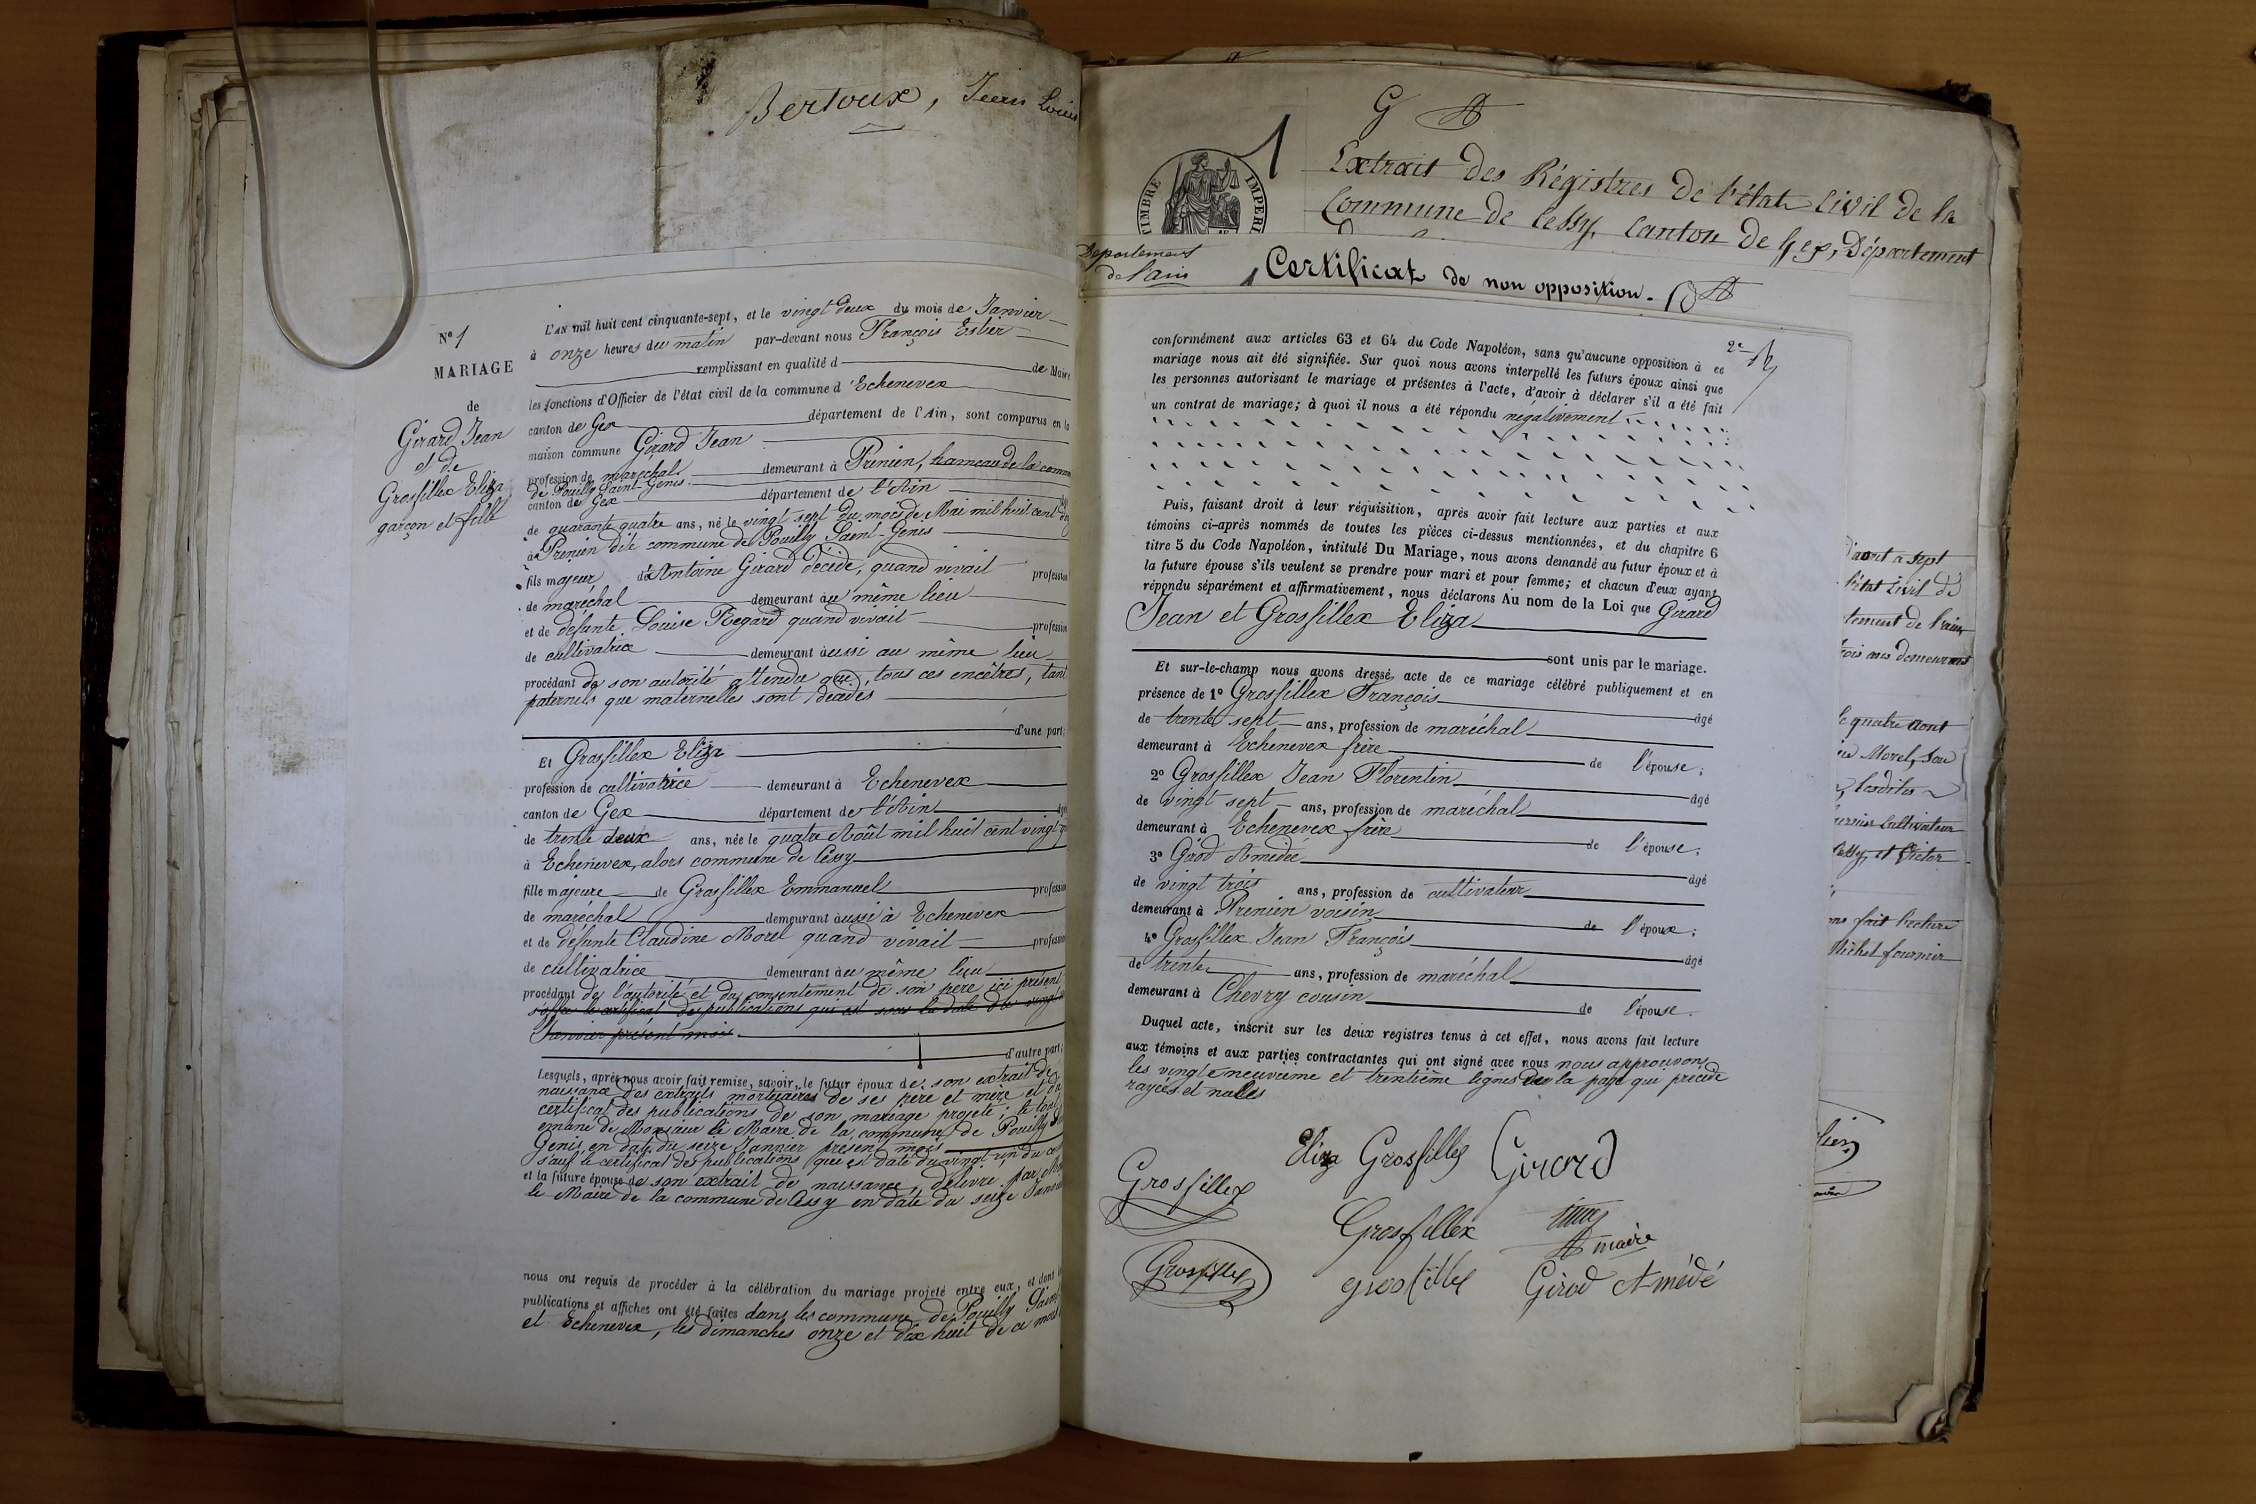 Bertoux, Jean Louis
N° 1
MARIAGE
de
Girard Jean
et de
Grosfillex Eliza
garçon et fille
L'AN mil huit cent cinquante-sept, et le vingt deux du mois de Janvier
à onze heures du matin par-devant nous François Estier
remplissant en qualité d de Maire
les fonctions d'Officier de l'état civil de la commune d'Echenevex
canton de Gex département de l'Ain, sont comparus en la
maison commune Girard Jean
profession de maréchal demeurant à Prenien, hameau de la comm
de Pouilly Saint-Genis
canton de Gex département de l'Ain
de quarante quatre ans, né le vingt sept du mois de Mai mil huit cent
à Prenien dite commune de Pouilly Saint-Genis
fils majeur d'Antoine Girard décédé, quand vivait profession
de maréchal demeurant au même lieu
et de défunte Louise Regard quand vivait profession
de cultivatrice demeurant aussi au même lieu
procédant de son autorité attendu que, tous ces encêtres, tant
paternels que maternelles sont décédés
d'une part;
Et Grosfillex Eliza
profession de cultivatrice demeurant à Echenevex
canton de Gex département de l'Ain
de trente deux ans, née le quatre Août mil huit cent vingt
à Echenevex, alors commune de Cessy
fille majeure de Grosfillex Emmanuel profession
de maréchal demeurant aussi à Echenevex
et de défunte Claudine Morel quand vivait profession
de cultivatrice demeurant au même lieu
procédant de l'autorité et du consentement de son père ici présent
sauf le certificat des publications qui est sous la date du vingt
Janvier présent mois
d'autre part;
Lesquels, après nous avoir fait remise, savoir, le futur époux de son extrait de
naissance des extraits mortuaires de ses père et mère et du
certificat des publications de son mariage projeté; le tout
émané de Monsieur le Maire de la commune de Pouilly St
Genis en date du seize Janvier présent mois
sauf le certificat des publications qui est daté du vingt un du
et la future épouse de son extrait de naissance, délivré par
le Maire de la commune de Cessy en date du seize Janvier
nous ont requis de procéder à la célébration du mariage projeté entre eux, et dont
publications et affiches ont été faites dans les commune de Pouilly Saint
et Echenevex, les dimanches onze et dix huit de ce mois
G
1
TIMBRE IMPERI
Extrait des Régistres de l'état civil de la
Commune de Cessy, Canton de Gex, Département
Département
de l'ain
Certificat de non opposition.
2e
conformément aux articles 63 et 64 du Code Napoléon, sans qu'aucune opposition à ce
mariage nous ait été signifiée. Sur quoi nous avons interpellé les futurs époux ainsi que
les personnes autorisant le mariage et présentes à l'acte, d'avoir à déclarer s'il a été fait
un contrat de mariage; à quoi il nous a été répondu négativement
Puis, faisant droit à leur réquisition, après avoir fait lecture aux parties et aux
témoins ci-après nommés de toutes les pièces ci-dessus mentionnées, et du chapitre 6
titre 5 du Code Napoléon, intitulé Du Mariage, nous avons demandé au futur époux et à
la future épouse s'ils veulent se prendre pour mari et pour femme; et chacun d'eux ayant
répondu séparément et affirmativement, nous déclarons Au nom de la Loi que Girard
Jean et Grosfillex Eliza
sont unis par le mariage.
Et sur-le-champ nous avons dressé acte de ce mariage célébré publiquement et en
présence de 1° Grosfillex François âgé
de trente sept ans, profession de maréchal
demeurant à Echenevex frère de l'épouse;
2° Grosfillex Jean Florentin âgé
de vingt sept ans, profession de maréchal
demeurant à Echenevex frère de l'épouse;
3° Girod Amédée âgé
de vingt trois ans, profession de cultivateur
demeurant à Prenien voisin de l'époux;
4° Grosfillex Jean François âgé
de trente ans, profession de maréchal
demeurant à Chevry cousin de l'épouse.
Duquel acte, inscrit sur les deux registres tenus à cet effet, nous avons fait lecture
aux témoins et aux parties contractantes qui ont signé avec nous nous approuvons
les vingt neuvième et trentième lignes de la page qui précède
rayées et nulles
Eliza Grosfillex Girard
Grosfillex
Grosfillex
maire
Grosfillex
grosfillex
Girod Amédé
d'aout a sept
l'état civil de
tement de l'ain,
trois ans demeurant
le quatre aout
Morel, son
lesdites
cultivateur
Cessy, et Victor
fait lecture
Michel fournier